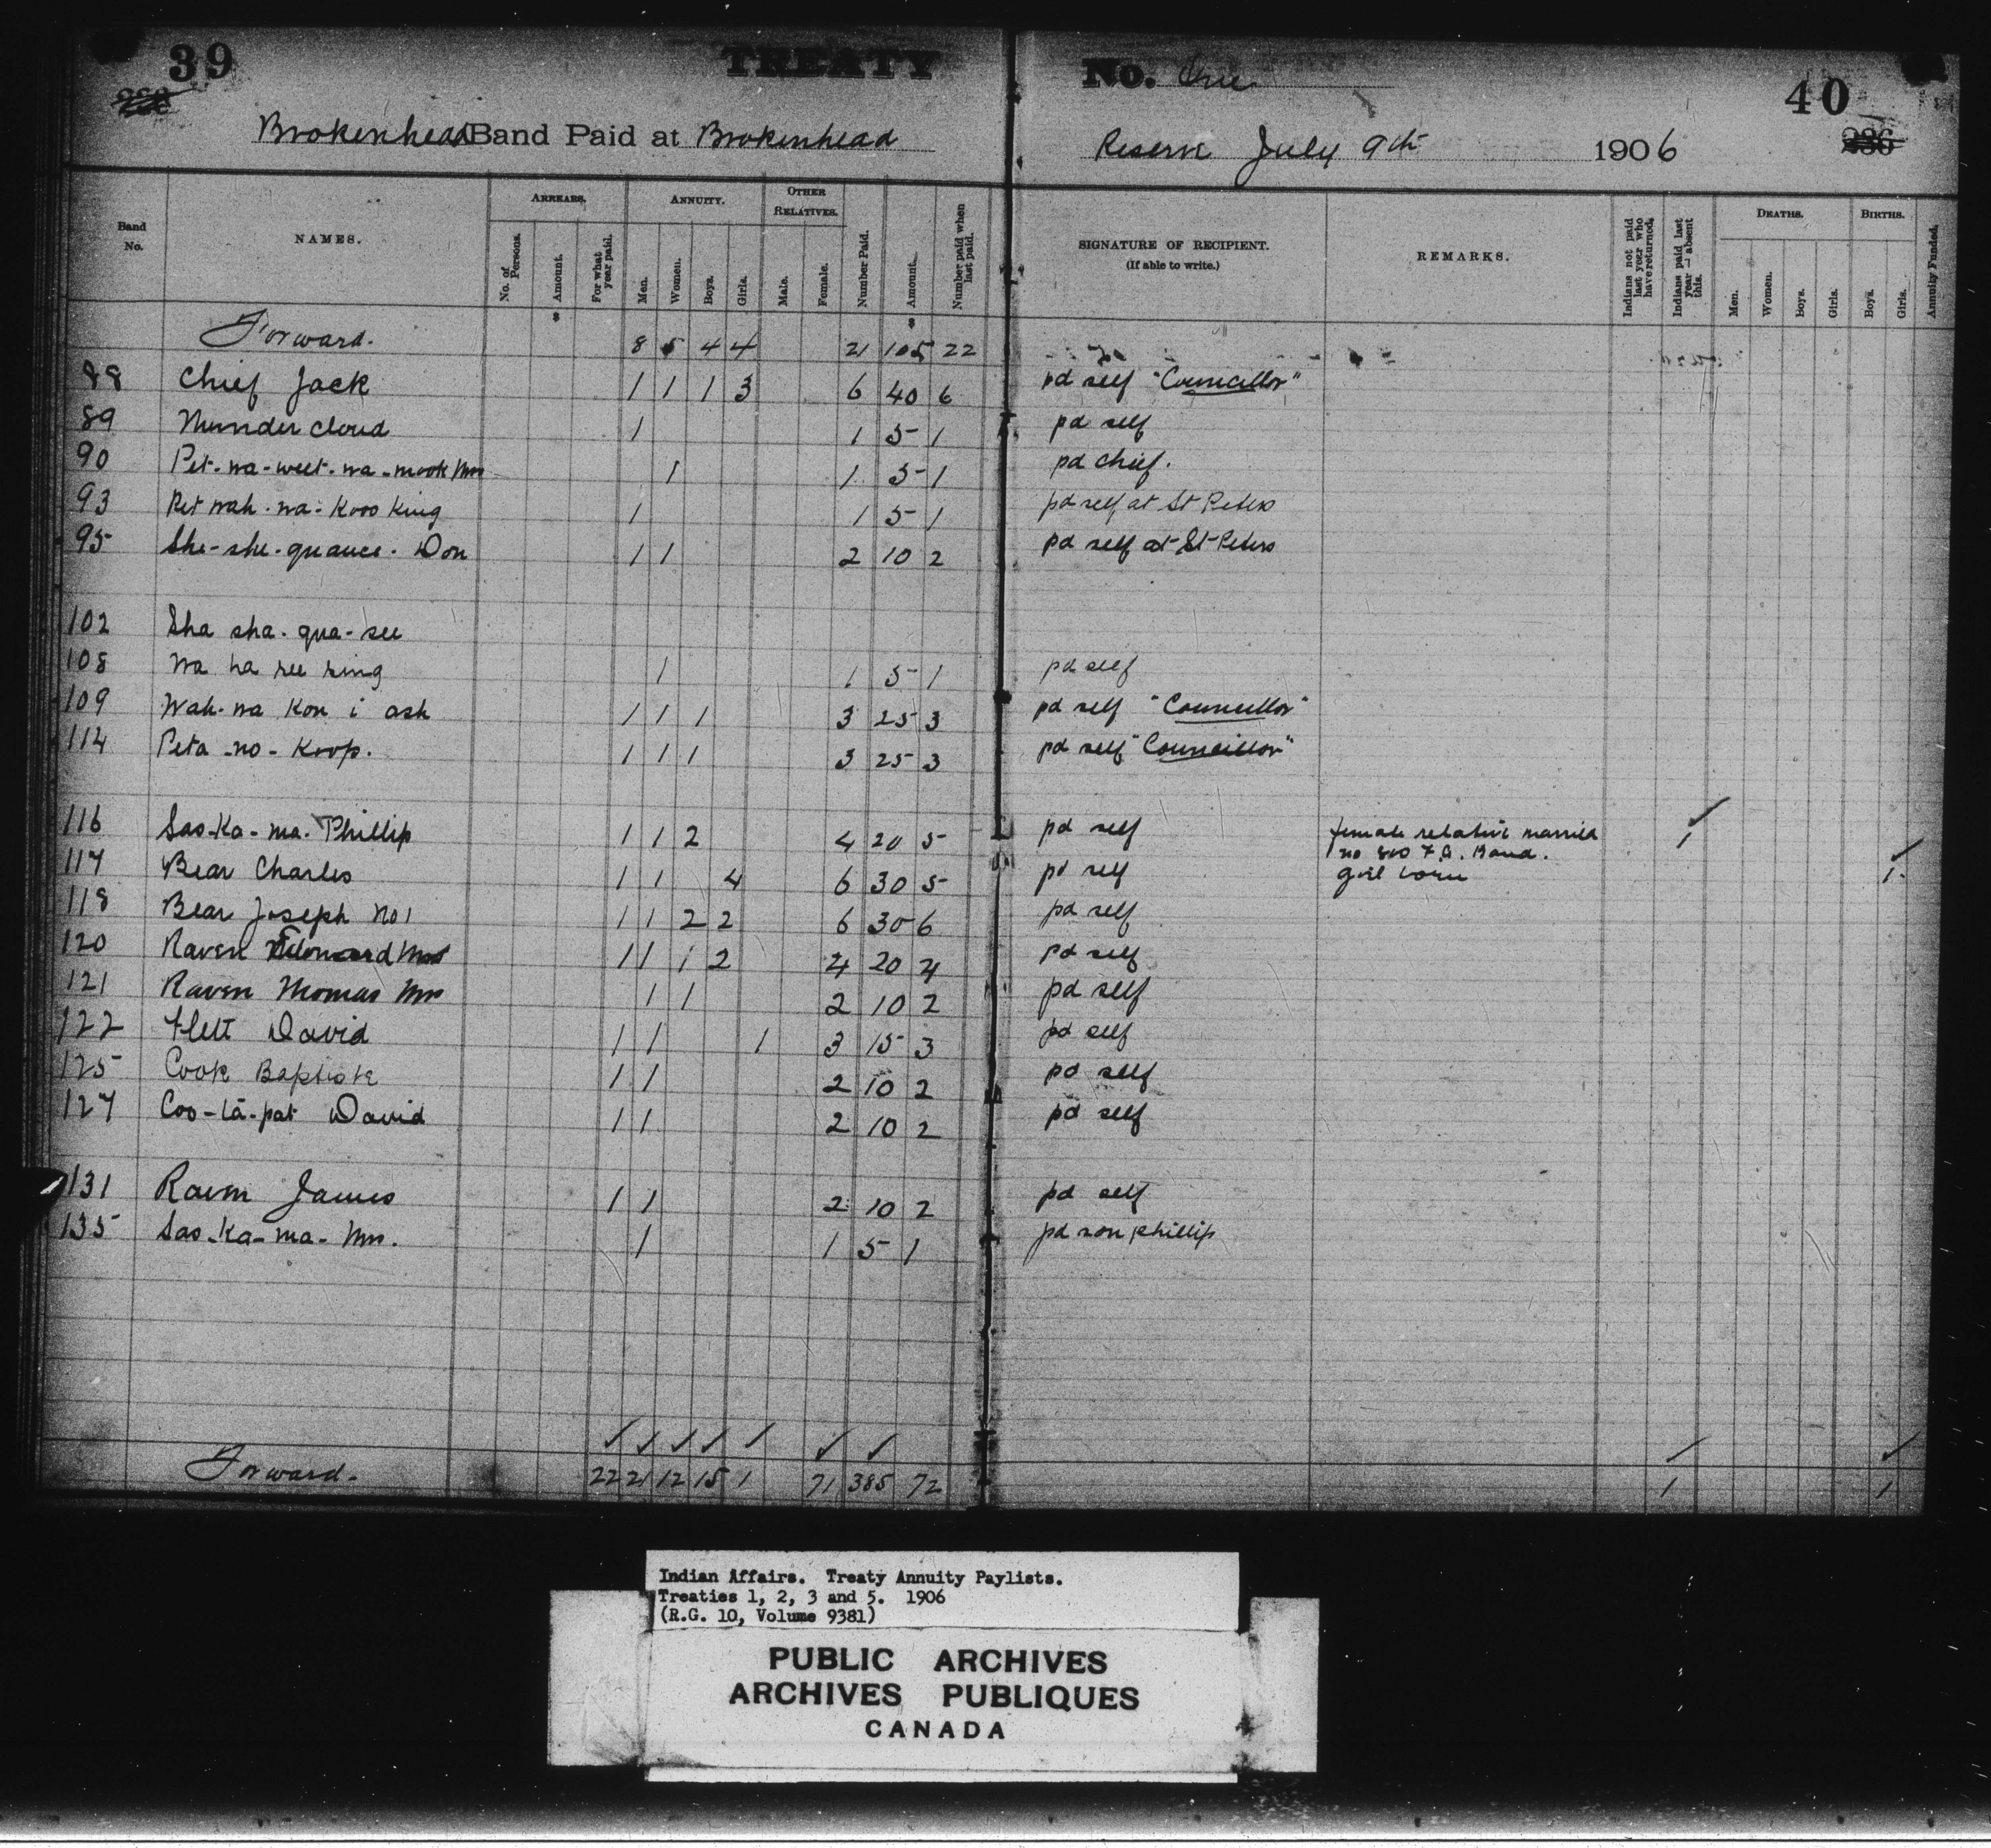 39 TREATY No. One 40
236
Brokenhead Band Paid at Brokenhead Reserve July 9th 1906
Band No. NAMES. ARREARS. ANNUITY. OTHER RELATIVES. Number Paid. Amount. Number paid when last paid. SIGNATURE OF RECIPIENT. (If able to write.) REMARKS. Indians not paid last year who have returned. Indians paid last year absent this. DEATHS. BIRTHS. Annuity Funded.
No. of Persons. Amount. For what year paid. Men. Women. Boys. Girls. Male. Female. Men. Women. Boys. Girls. Boys. Girls.
$ $
Forward. 8 5 4 4 21 105 22
88 Chief Jack 1 1 1 3 6 40 6 pd self "Councillor"
89 Thunder cloud 1 1 5 1 pd self
90 Pet-wa-weet-wa-mook Mrs 1 1 5 1 pd chief.
93 Pet wah-wa-Koos King 1 1 5 1 pd self at St Peters
95 She-she-quance. Don 1 1 2 10 2 pd self at St Peters
102 Sha sha-qua-see
108 Na na see sing 1 1 5 1 pd self
109 Wah-wa Kon i ash 1 1 1 3 25 3 pd self "Councillor"
114 Peta-no-Koop. 1 1 1 3 25 3 pd self "Councillor"
116 Sas-Ka-ma. Phillip 1 1 2 4 20 5 pd self female relative married 1
no F.A. Band.
117 Bear Charles 1 1 4 6 30 5 pd self girl born 1
118 Bear Joseph No 1 1 1 2 2 6 30 6 pd self
120 Raven Mrs 1 1 1 2 4 20 4 pd self
121 Raven Thomas Mrs 1 1 2 10 2 pd self
122 Flett David 1 1 1 3 15 3 pd self
125 Cook Baptiste 1 1 2 10 2 pd self
127 Coo-tā-pat David 1 1 2 10 2 pd self
131 Raven James 1 1 2 10 2 pd self
135 Sas-Ka-ma-Mrs. 1 1 5 1 pd son Phillip
Forward. 22 21 12 15 1 71 385 72 1 1
Indian Affairs. Treaty Annuity Paylists.
Treaties 1, 2, 3 and 5. 1906
(R.G. 10, Volume 9381)
PUBLIC ARCHIVES
ARCHIVES PUBLIQUES
CANADA